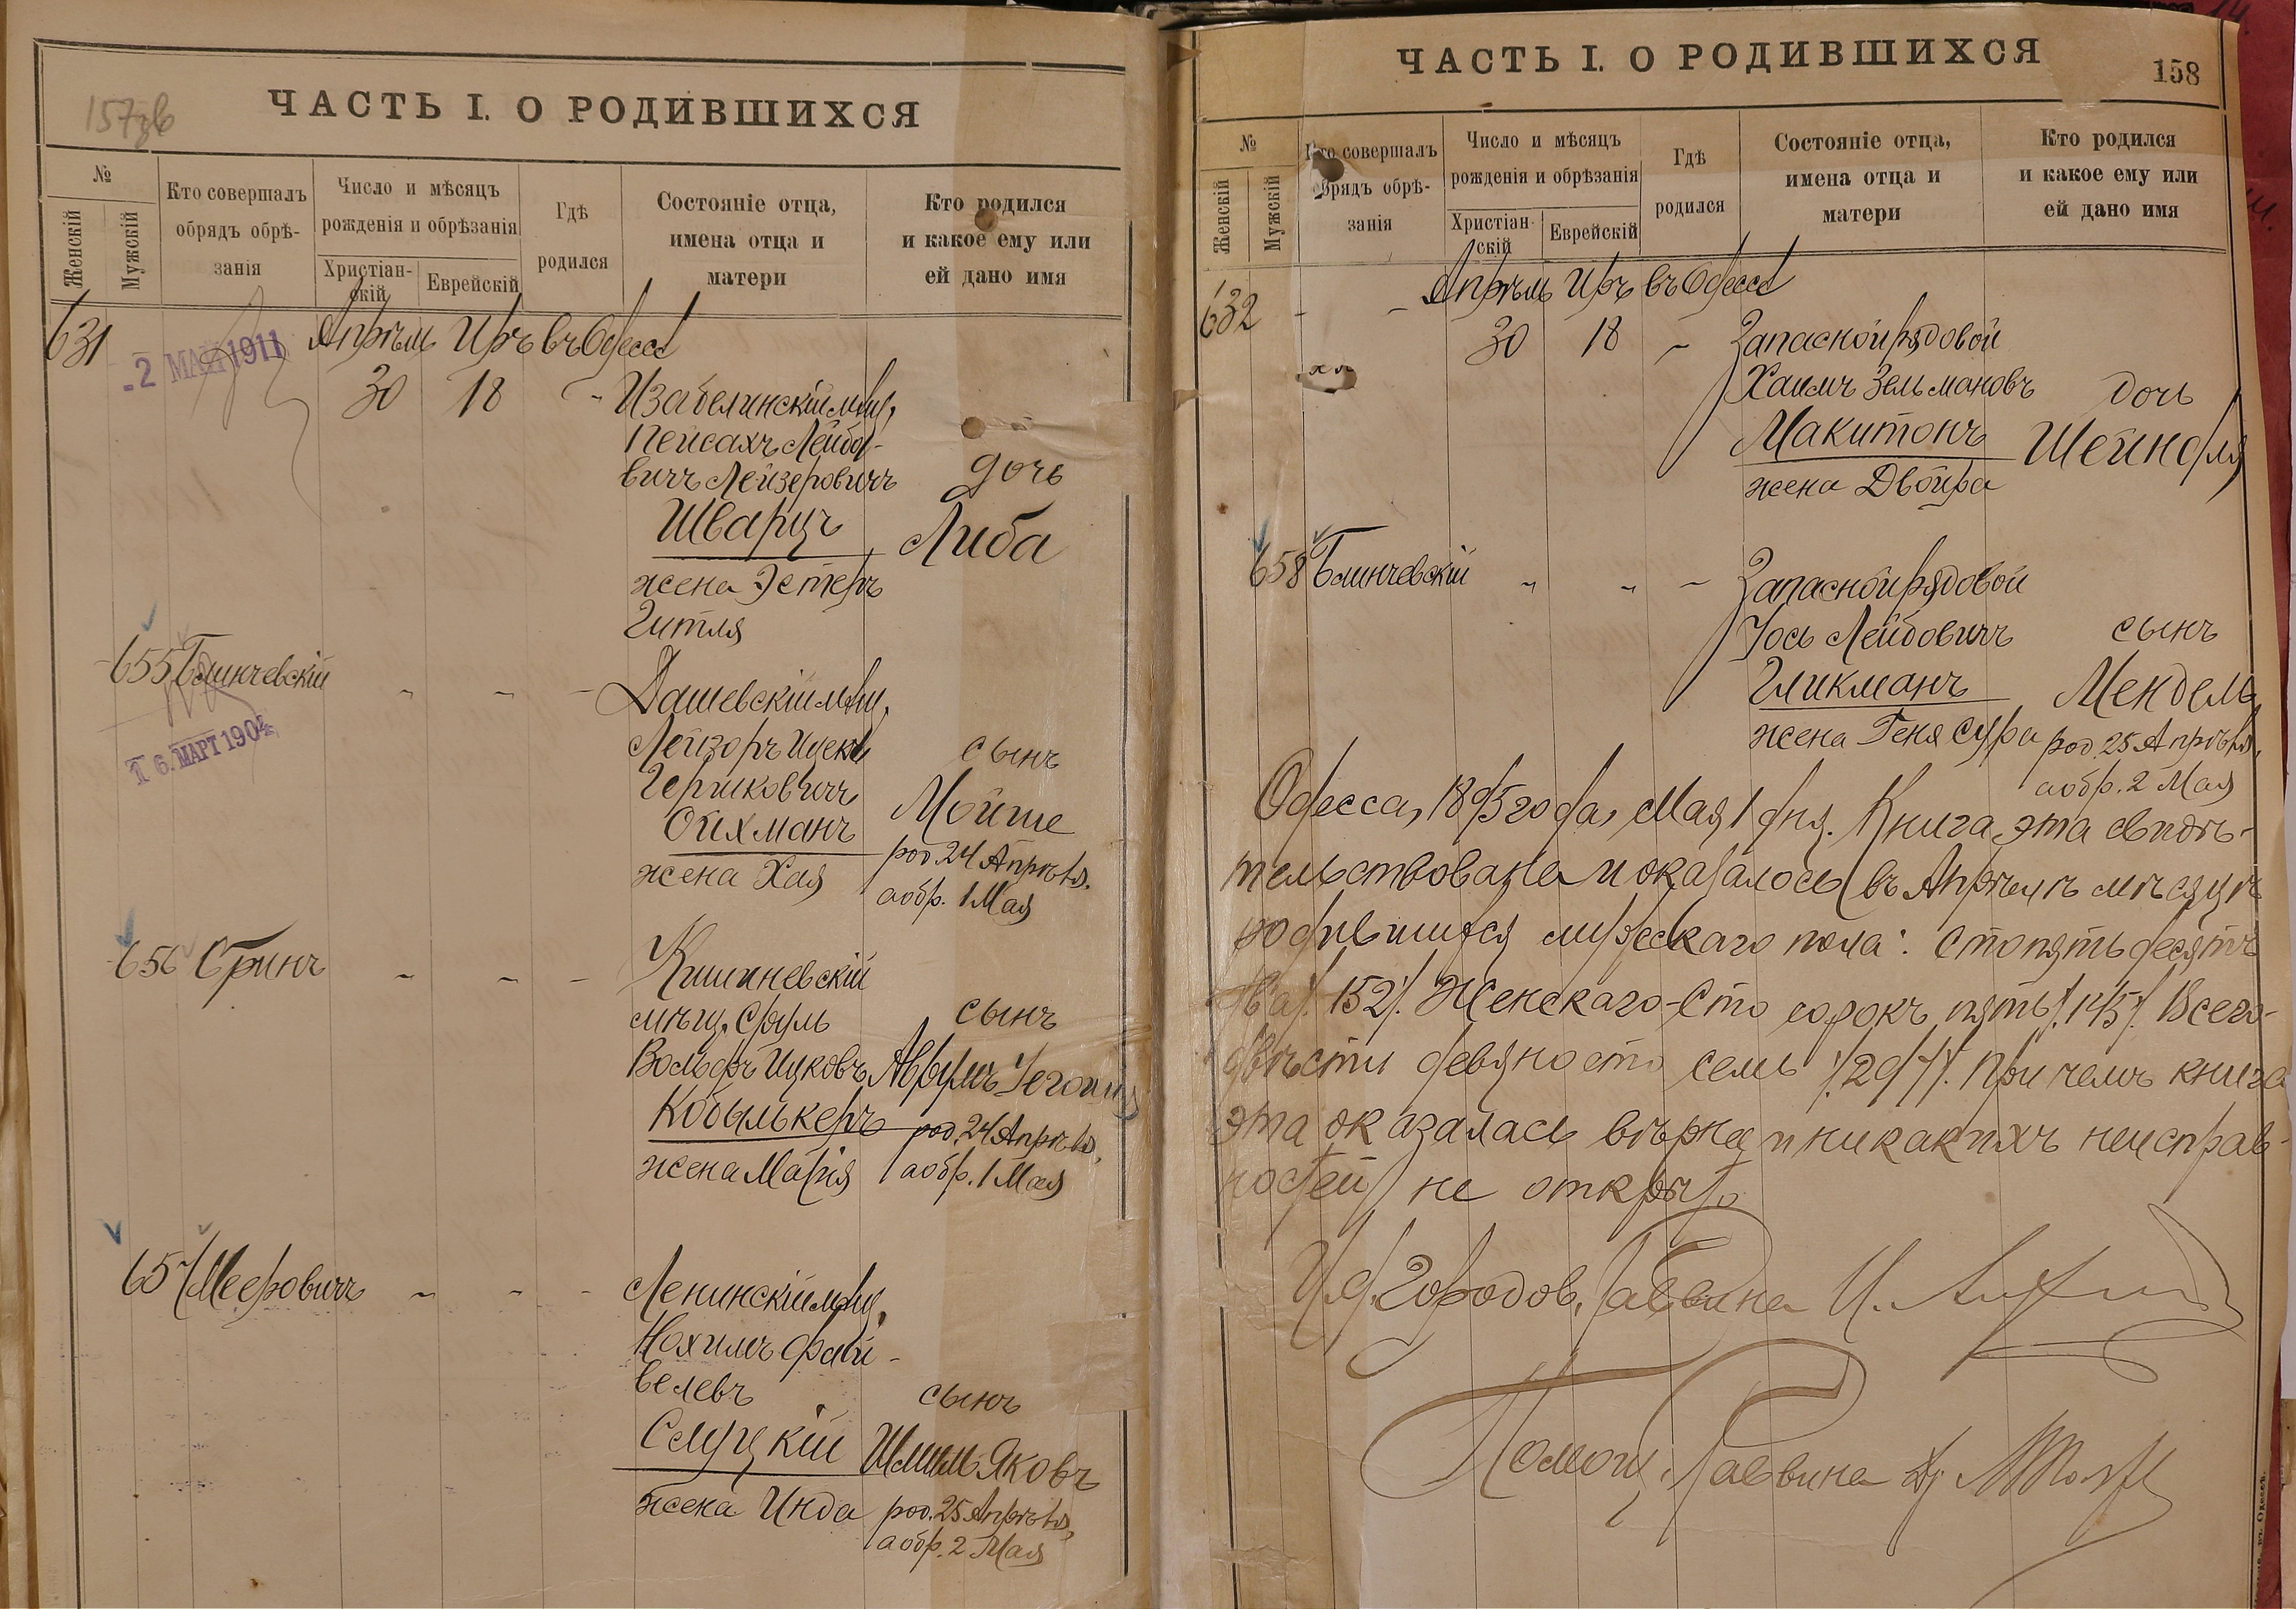 157 зв
ЧАСТЬ I. О РОДИВШИХСЯ
№
Женскій
Мужскій
Кто совершалъ
обрядъ обрѣ-
занія
Число и мѣсяцъ
рожденія и обрѣзанія
Христіан-
скій
Еврейскій
Гдѣ
родился
Состояніе отца,
имена отца и
матери
Кто родился
и какое ему или
ей дано имя
631
-2 МАЙ 1911
Апрѣль Иръ въ Одессѣ
30 18 - Изабелинскій мѣщ.
Пейсахъ Лейбо-
вичъ Лейзеровичъ
дочь
Шварцъ
Либа
жена Эстеръ
Гитля
655 Блинчевскій - - - Дашевскій мѣщ.
16. МАРТ 1904
Лейзоръ Ицекъ
сынъ
Гершковичъ
Мойше
Ойхманъ
род. 24 Апрѣля.
жена Хая
а обр. 1 Мая
656 Гринъ - - - Кишиневскій
мѣщ. Сруль
сынъ
Вольфъ Ицковъ
Аврумъ Іегошія
Кобылькеръ
род. 24 Апрѣля,
жена Марія
а обр. 1 Мая
657 Мееровичъ - - - Ленинскій мѣщ.
Нохимъ Фай-
велевъ
сынъ
Слуцкій
Шмиль Яковъ
жена Инда
род. 25 Апрѣля,
а обр. 2 Мая
ЧАСТЬ I. О РОДИВШИХСЯ
158
№
Женскій
Мужскій
Кто совершалъ
обрядъ обрѣ-
занія
Число и мѣсяцъ
рожденія и обрѣзанія
Христіан-
скій
Еврейскій
Гдѣ
родился
Состояніе отца,
имена отца и
матери
Кто родился
и какое ему или
ей дано имя
632 - - Апрѣль Иръ въ Одессѣ
30 18 - Запасной рядовой
Хаимъ Зельмановъ
дочь
Макитонъ
Шейндля
жена Двойра
658 Блинчевскій - - - Запасной рядовой
Іось Лейбовичъ
сынъ
Гликманъ
Мендель
жена Геня Сура
род. 25 Апрѣля,
а обр. 2 Мая
Одесса, 1895 года, Мая 1 дня. Книга эта свидѣ-
тельствована и оказалось въ Апрѣлѣ мѣсяцѣ
родившихся мужескаго пола: сто пятьдесятъ
два /152/. Женскаго - Сто сорокъ пять /145/. Всего -
двѣсти девяносто семь /297/. При чемъ книга
эта оказалась вѣрна и никакихъ неисправ-
ностей не открыто
И. д. Городов. Раввина И.
Помощ. Раввина